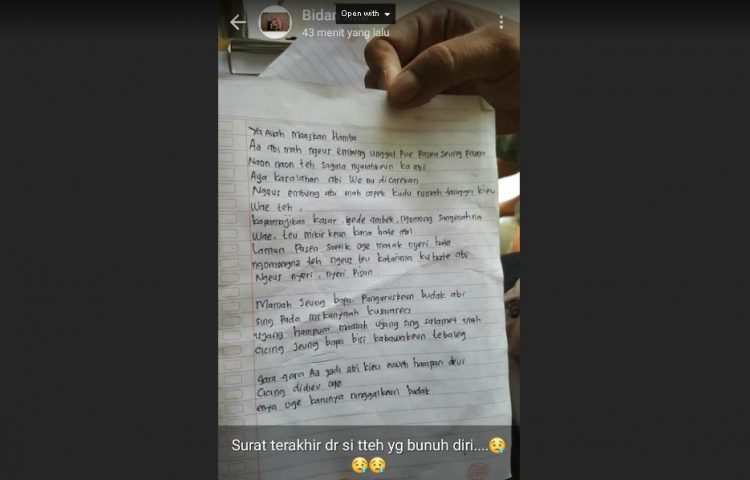 Bidan
Open with
43 menit yang lalu
Ya Allah Maafkan Hamba
Aa abi mah ngeus embung unggal Poe Pasea Jeung Pasea
Naon naon teh sagala nyalahkeun ka abi
Aya karalahan abi We nu dicarekan
Ngeus embung abi mah capek kudu rumah tangga kieu
Wae teh.
kapamajikan kasar, gede ambek, ngomong sangenahna
Wae, teu mikirkeun kana hate abi.
Lamun Pasea saetik oge matak nyeri hate
ngomongna teh ngeus teu katarima ku hate abi
Ngeus nyeri, nyeri Pisan
Mamah Jeung bapa Pangeruskeun budak abi
sing Pada
Ujang hampura mamah ujang sing salamet
Cicing Jeung bapa bisi kabawakeun
gara gara Aa jadi abi kieu euweh harapan deui
Cicing didieu oge
enya oge karunya ninggalkeun budak
Surat terakhir dr si tteh yg bunuh diri....😢
😢😢